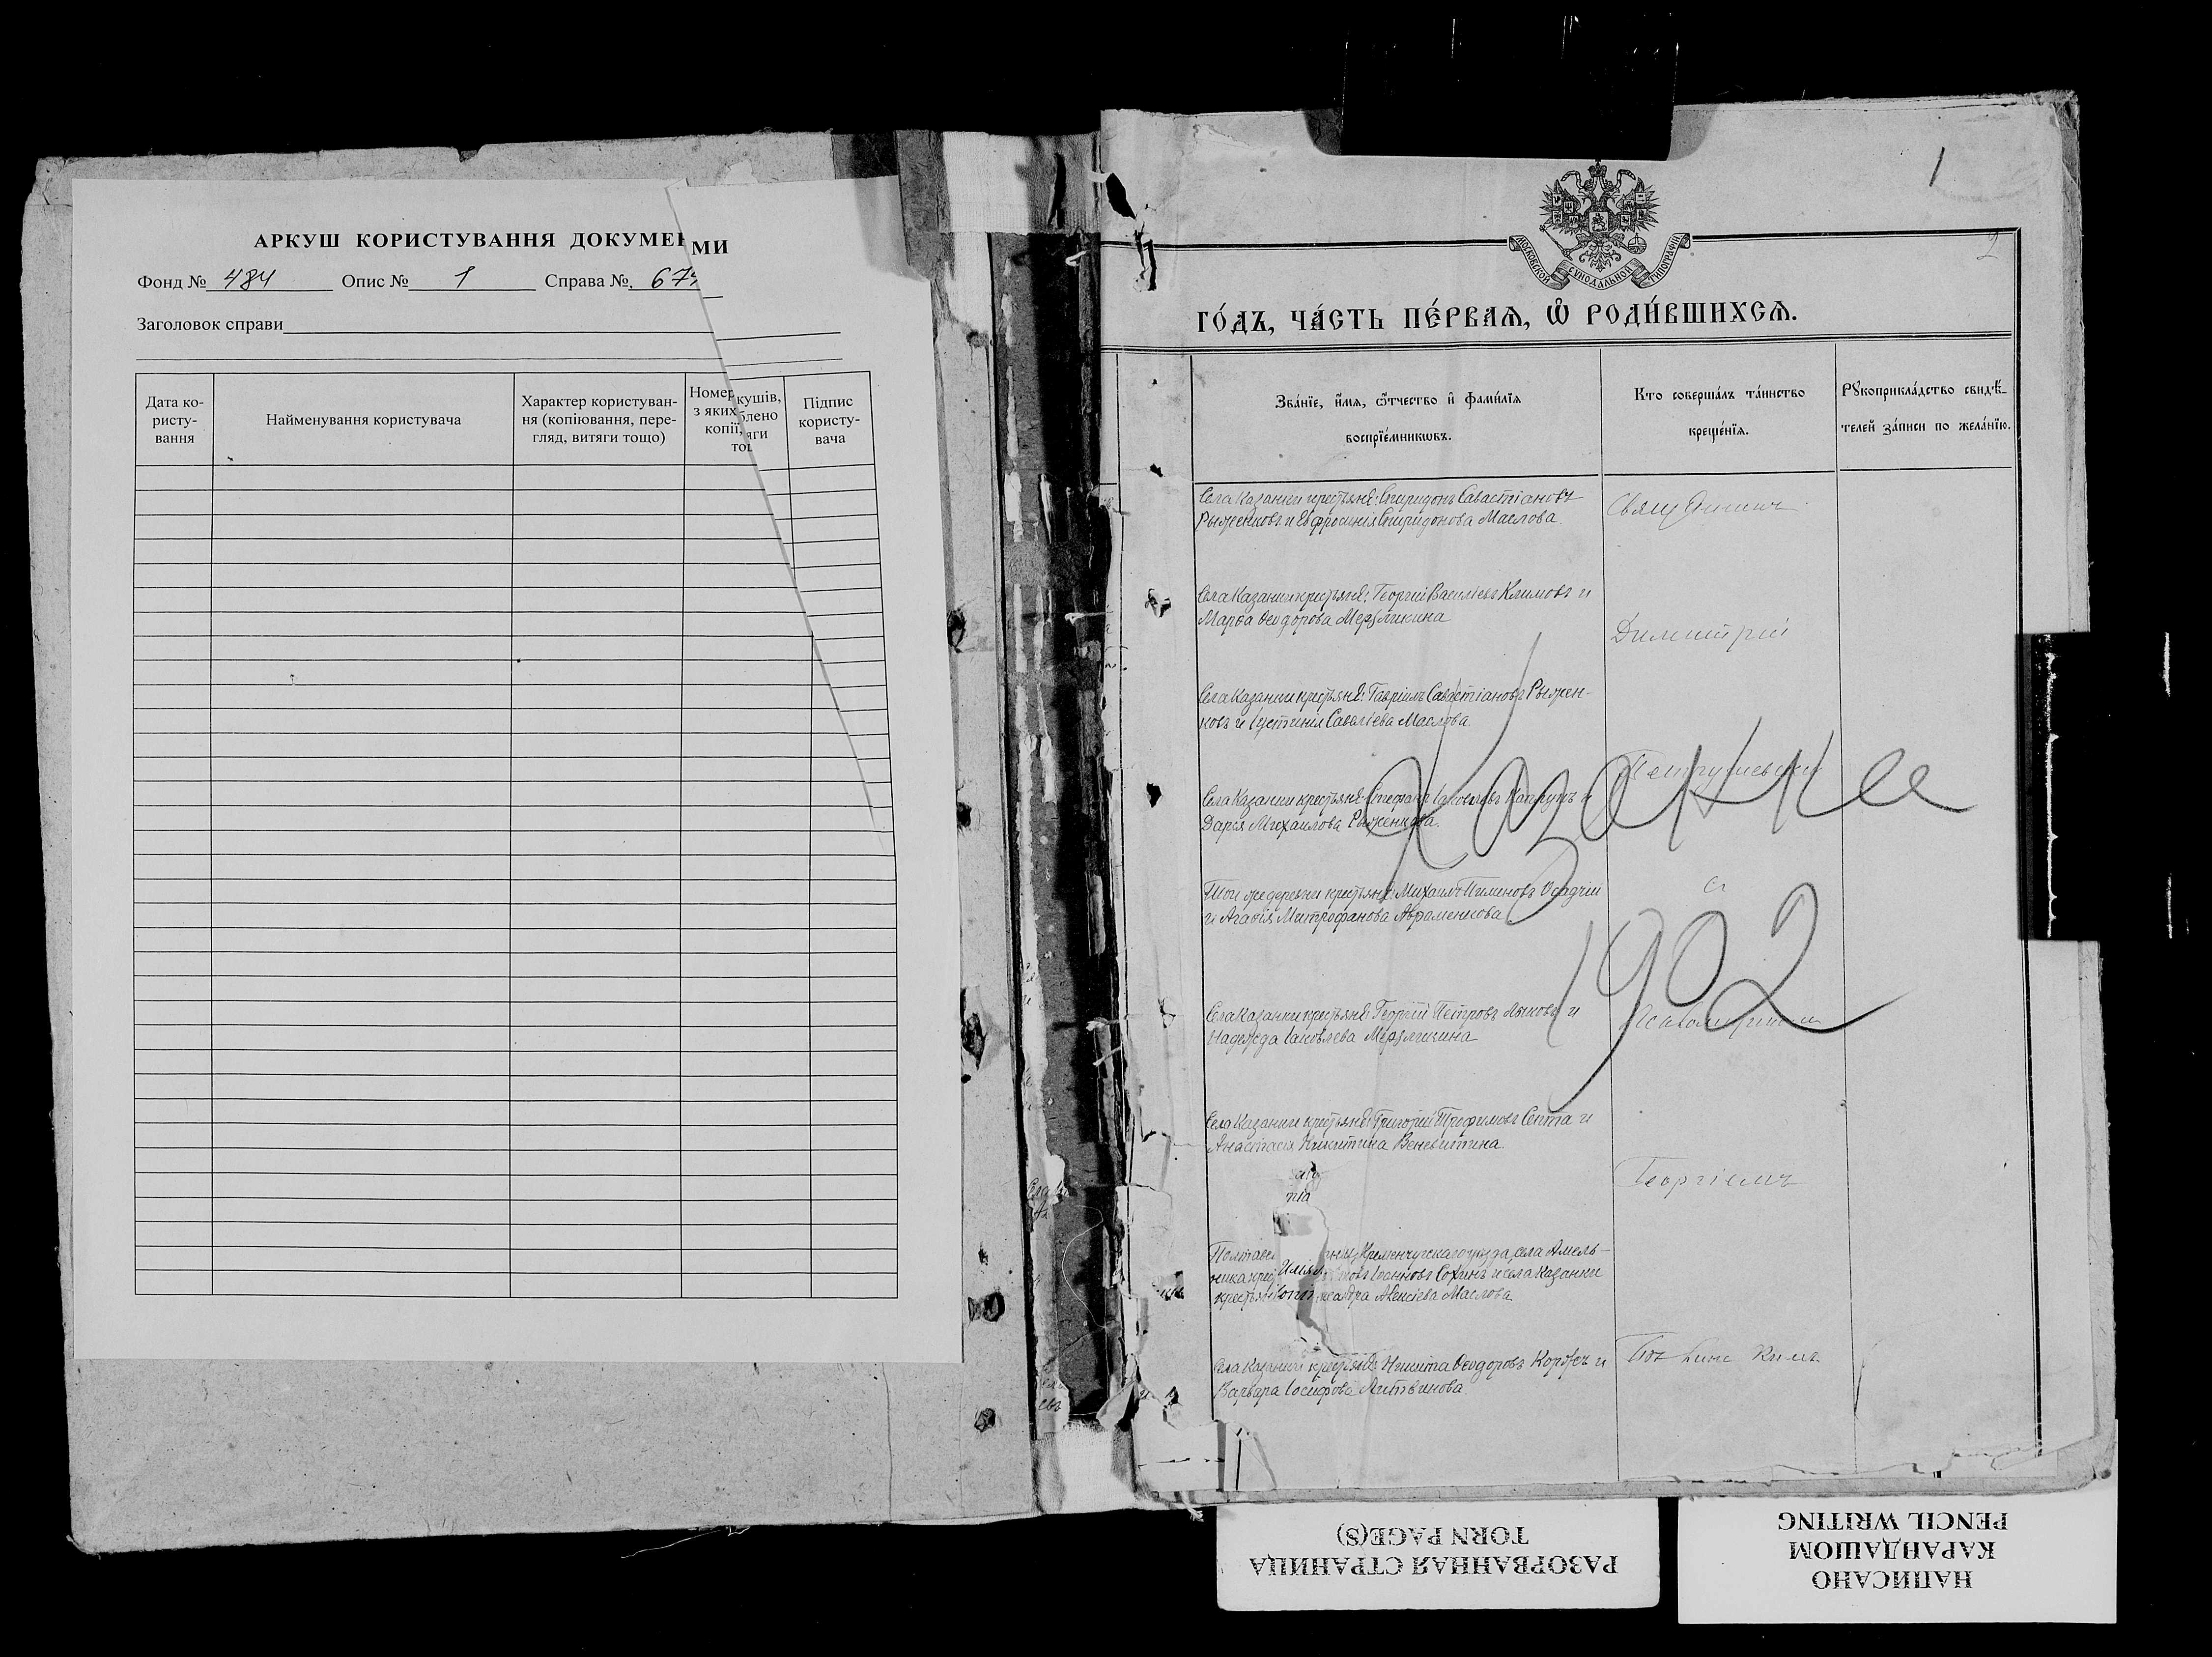 АРКУШ КОРИСТУВАННЯ ДОКУМЕ МИ
Фонд № 484 Опис № 1 Справа №. 67
Заголовок справи
Дата ко-
ристу-
вання
Найменування користувача
Характер користуван-
ня (копіювання, пере-
гляд, витяги тощо)
Номер кушів,
з яких блено
копії, яги
тощ
Підпис
користу-
вача
1
2
МОСКОВСКОЙ СѴНОДАЛЬНОЙ ТИПОГРАФІИ
ГО́ДЪ, ЧА́СТЬ ПЕ́РВАѦ, Ѡ҆ РОДИ́ВШИХСѦ.
Зва́нїе, и҆́мѧ, ѻ҆́тчество и҆ фами́лїѧ
воспрїе́мникѡвъ.
Кто соверша́лъ та́инство
креще́нїѧ.
Рꙋкоприкла́дство свидѣ́-
телей за́писи по жела́нїю.
Села Казанки крестьяне: Спиридонъ Савастіановъ
Рыженковъ и Евфросинія Спиридонова Маслова.
Свящ
Села Казанки крестьяне: Георгій Васильевъ Климовъ и
Марѳа Ѳеодорова Мерзликина
Димитрій
Села Казанки крестьяне: Гавріилъ Савастіановъ Рыжен-
ковъ и Іустинія Савелієва Маслова
Петрушевскій
Казанка
Села Казанки крестьяне: Стефанъ Іаковлевъ и
Дарія Михаилова Рыженкова.
Той же деревни крестьяне: Михаилъ Пименовъ Осадчій
и Агаѳія Митрофанова Авраменкова
съ
1902
Села Казанки крестьяне: Георгій Петровъ Лыковъ и
Надежда Іаковлева Мерзликина
Псаломщикомъ
Села Казанки крестьяне: Григорій Трофимовъ Сента и
Анастасія Никитина Веневитина
Георгіемъ
Полтавс Кременчугскаго уѣзда, села Амель-
ника Іоанновъ Сохинъ и села Казанки
Алексіева Маслова
Села Казанки крестьяне: Никита Ѳеодоровъ Коржъ и
Варвара Іосифова Литвинова.
РАЗОРВАННАЯ СТРАНИЦА
TORN PAGE(S)
НАПИСАНО
КАРАНДАШОМ
PENCIL WRITING